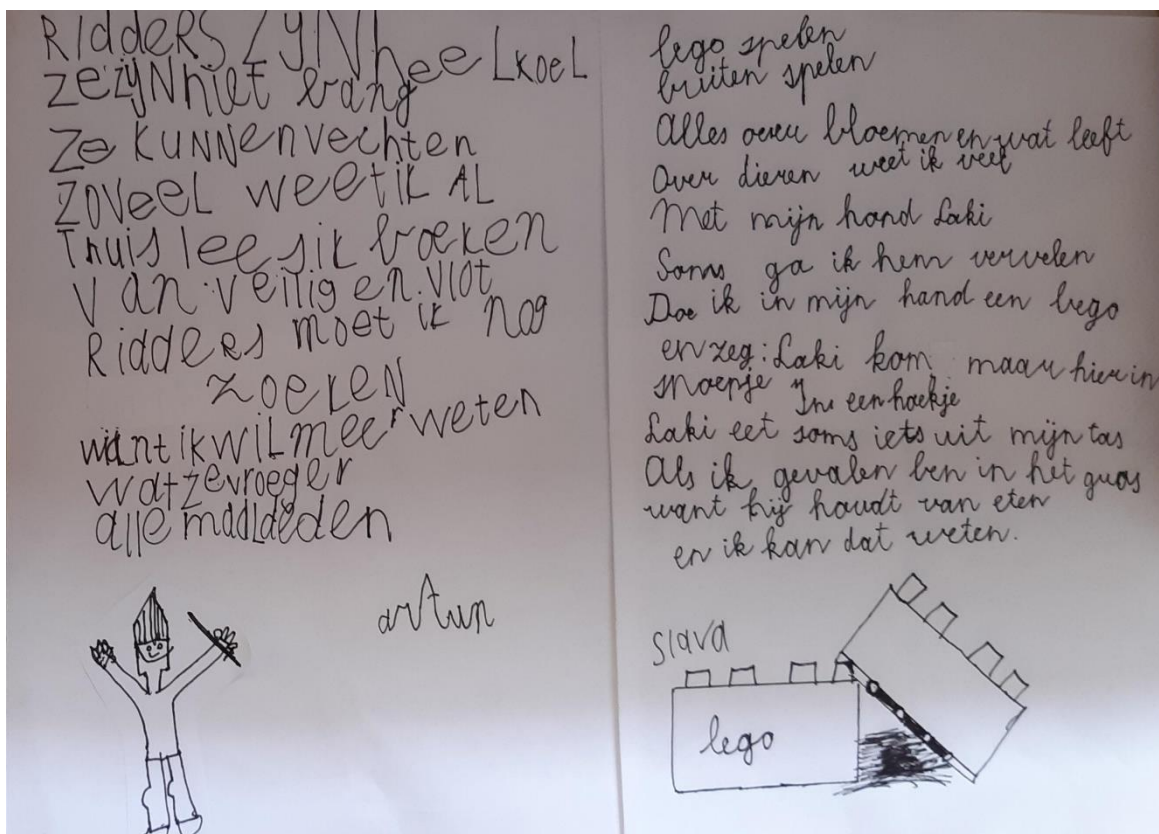 RiddeRS ZyN heeLkoeL
ZeZyN niet bang
Ze kuNNenvechten
ZoveeL weetik AL
Thuis leesik boeken
van veilig en vlot
Ridders moet ik nog
zoeken
want ik wil meer weten
wat ze vroeger
alle maaldeden
artun
lego spelen
buiten spelen
Alles over bloemen en wat leeft
Over dieren weet ik veel
Met mijn hond Laki
Soms ga ik hem vervelen
Doe ik in mijn hand een lego
en zeg: Laki kom maar hier in
snoepje In een hoekje
Laki eet soms iets uit mijn tas
Als ik gevalen ben in het gras
want hij houdt van eten
en ik kan dat weten.
slava
lego